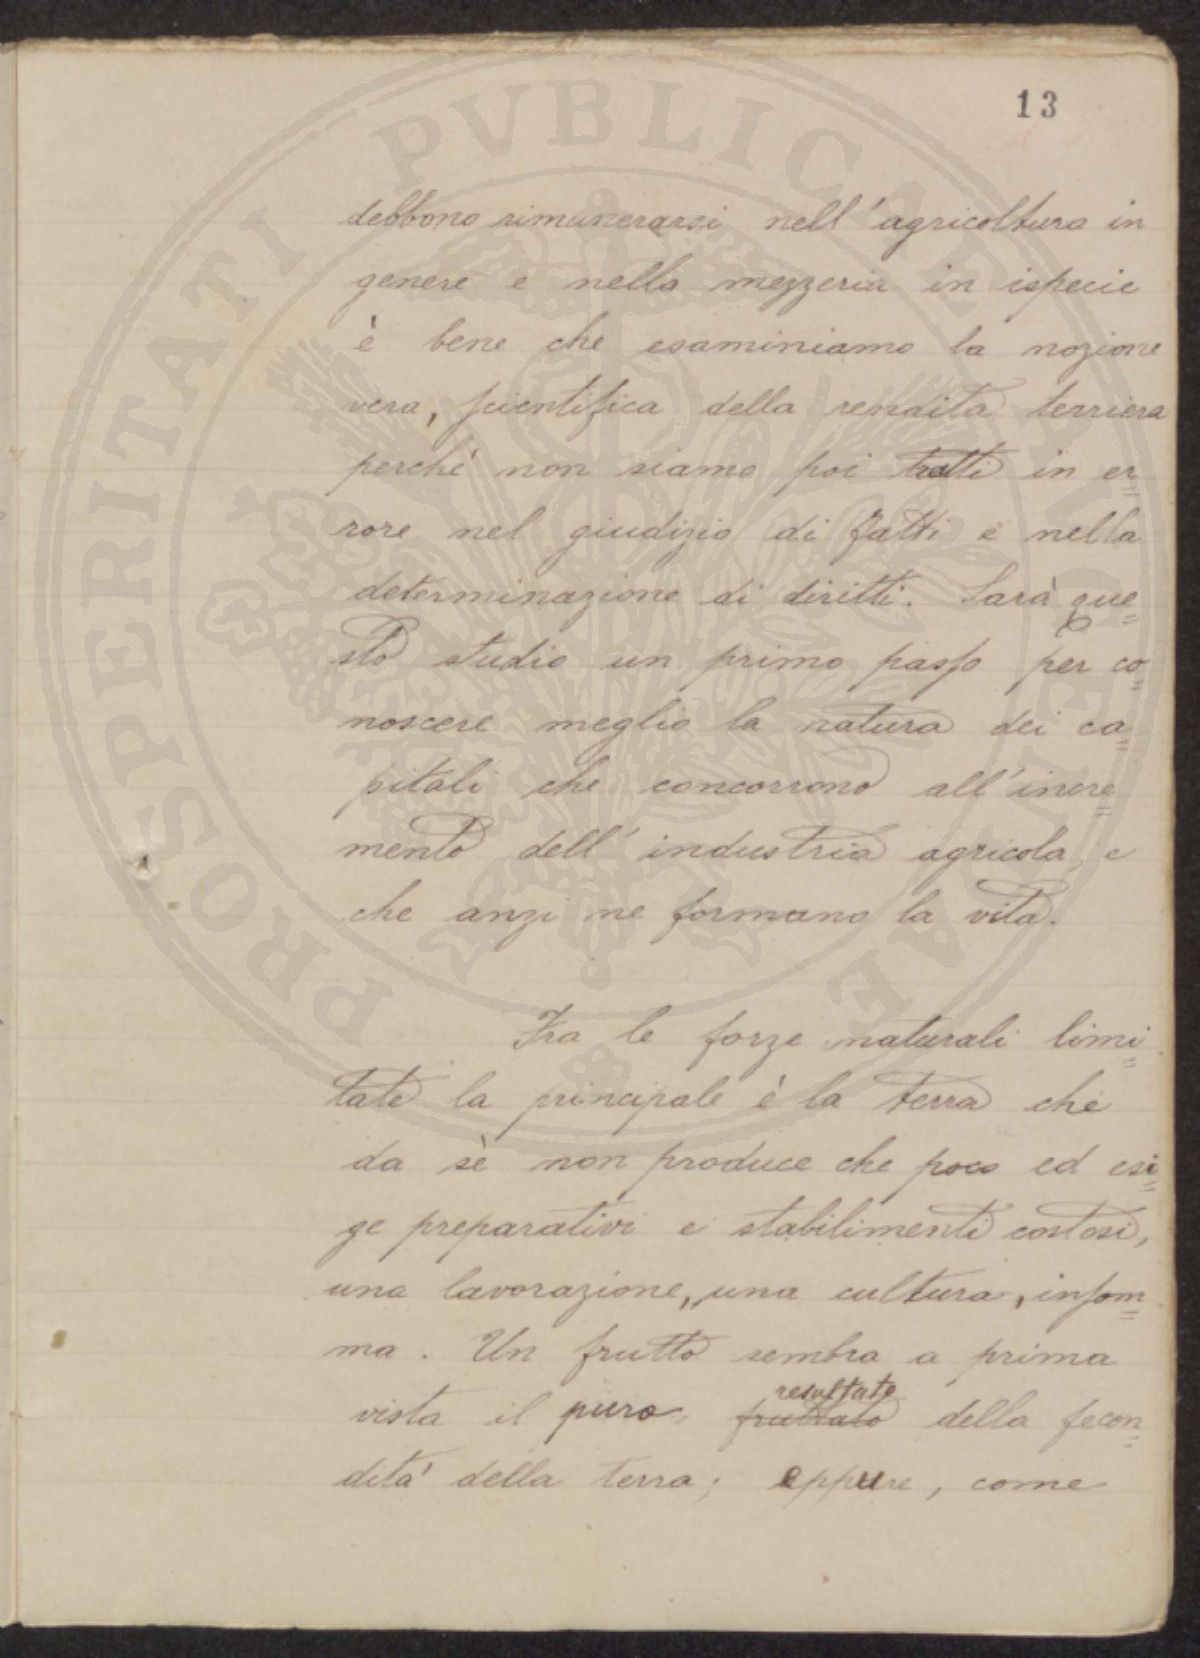 13
debbono rimunerarsi nell'agricoltura in
genere e nella mezzeria in ispecie
è bene che esaminiamo la nozione
vera, scientifica della rendita terriera
perchè non siamo poi tratti in er=
rore nel giudizio di fatti e nella
determinazione di diritti. Sarà que=
sto studio un primo passo per co=
noscere meglio la natura dei ca=
pitali che concorrono all'incre=
mento dell'industria agricola, e
che anzi ne formano la vita.
Fra le forze naturali limi=
tate la principale è la terra che
da sè non produce che poco ed esi=
ge preparativi e stabilimenti costosi,
una lavorazione, una cultura, insom=
ma. Un frutto sembra a prima
resultato
vista il puro, fruttato della fecon=
dità della terra; eppure, come
PROSPERITATI PVBLICAE AVGENDAE